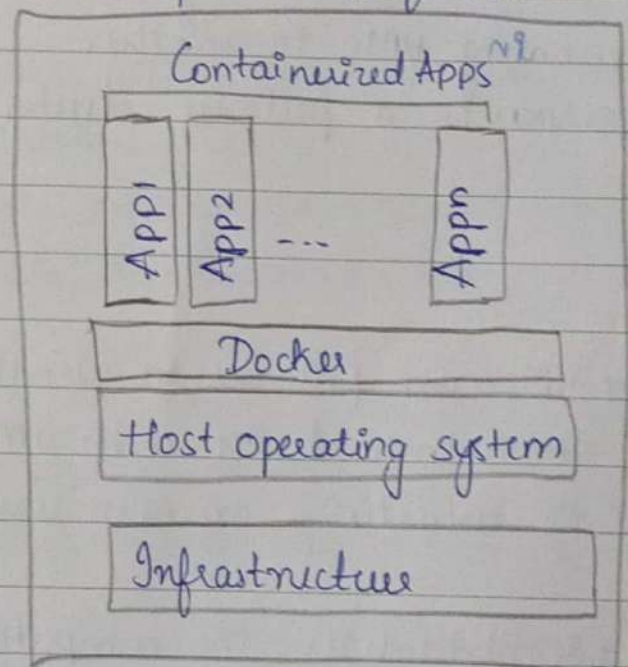 Containerized Apps
App1 App2 ... Appn
Docker
Host operating system
Infrastructure